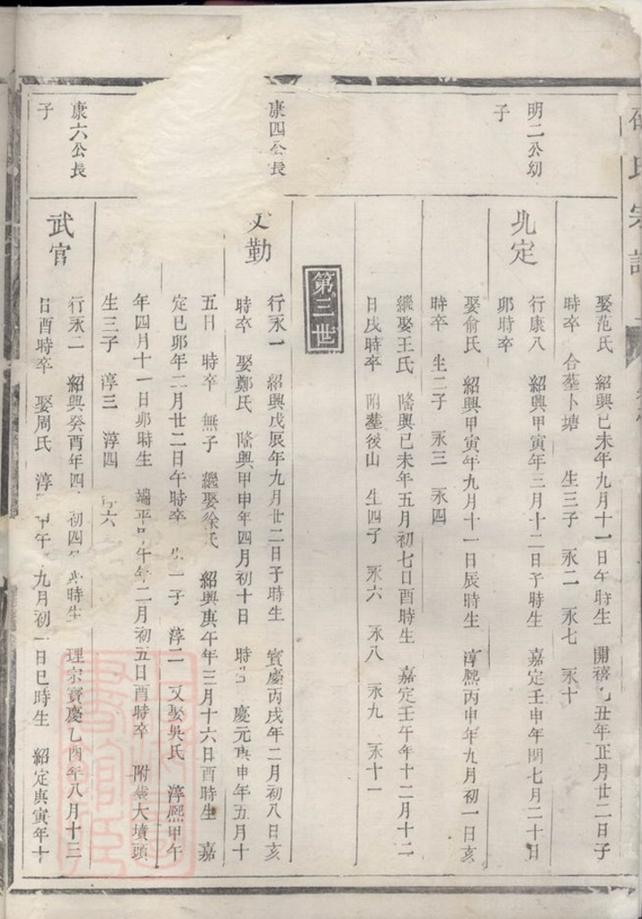 氏宗譜
娶范氏 紹興已未年九月十一日午時生 開禧乙丑年正月廿二日子
時卒 合塟卜塘 生三子 永二 永七 永十
明二公幼
子
九定
行康八 紹興甲寅年三月十二日子時生 嘉定壬申年閏七月二十日
卯時卒
娶俞氏 紹興甲寅年九月十一日辰時生 淳熙丙申年九月初一日亥
時卒 生二子 永三 永四
繼娶王氏 隆興已未年五月初七日酉時生 嘉定壬午年十二月十二
日戌時卒 附塟後山 生四子 永六 永八 永九 永十一
第三世
康四公長
文勤
行永一 紹興戊辰年九月廿二日子時生 寳慶丙戌年二月初八日亥
時卒 娶鄭氏 隆興甲申年四月初十日 時 慶元庚申年五月十
五日 時卒 無子 繼娶徐氏 紹興庚午年三月十六日酉時生 嘉
定已卯年二月廿二日午時卒 一子 淳二 又娶吳氏 淳熙甲午
年四月十一日卯時生 端平 午年二月初五日酉時卒 附塟大墳頭
生三子 淳三 淳四 六
康六公長
子
武官
行永二 紹興癸酉年四 初四 時生 理宗寳慶乙酉年八月十三
日酉時卒 娶周氏 淳 午 九月初一日巳時生 紹定庚寅年十